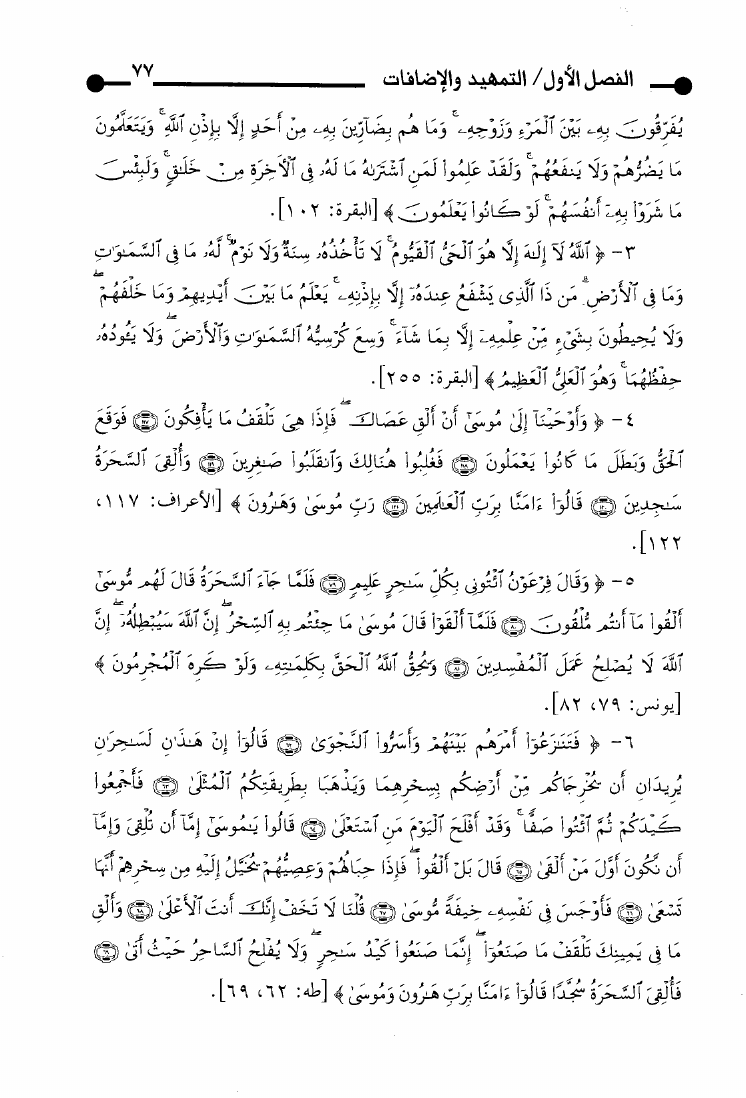 الفصل الأول/ التمهيد والإضافات ٧٧
يُفَرِّقُونَ بِهِۦ بَيْنَ ٱلْمَرْءِ وَزَوْجِهِۦ ۚ وَمَا هُم بِضَآرِّينَ بِهِۦ مِنْ أَحَدٍ إِلَّا بِإِذْنِ ٱللَّهِ ۚ وَيَتَعَلَّمُونَ
مَا يَضُرُّهُمْ وَلَا يَنفَعُهُمْ ۚ وَلَقَدْ عَلِمُوا۟ لَمَنِ ٱشْتَرَىٰهُ مَا لَهُۥ فِى ٱلْـَٔاخِرَةِ مِنْ خَلَـٰقٍ ۚ وَلَبِئْسَ
مَا شَرَوْا۟ بِهِۦٓ أَنفُسَهُمْ ۚ لَوْ كَانُوا۟ يَعْلَمُونَ ﴾ [البقرة: ١٠٢].
٣- ﴿ ٱللَّهُ لَآ إِلَـٰهَ إِلَّا هُوَ ٱلْحَىُّ ٱلْقَيُّومُ ۚ لَا تَأْخُذُهُۥ سِنَةٌ وَلَا نَوْمٌ ۚ لَّهُۥ مَا فِى ٱلسَّمَـٰوَٰتِ
وَمَا فِى ٱلْأَرْضِ ۗ مَن ذَا ٱلَّذِى يَشْفَعُ عِندَهُۥٓ إِلَّا بِإِذْنِهِۦ ۚ يَعْلَمُ مَا بَيْنَ أَيْدِيهِمْ وَمَا خَلْفَهُمْ ۖ
وَلَا يُحِيطُونَ بِشَىْءٍ مِّنْ عِلْمِهِۦٓ إِلَّا بِمَا شَآءَ ۚ وَسِعَ كُرْسِيُّهُ ٱلسَّمَـٰوَٰتِ وَٱلْأَرْضَ ۖ وَلَا يَـُٔودُهُۥ
حِفْظُهُمَا ۚ وَهُوَ ٱلْعَلِىُّ ٱلْعَظِيمُ ﴾ [البقرة: ٢٥٥].
٤- ﴿ وَأَوْحَيْنَآ إِلَىٰ مُوسَىٰٓ أَنْ أَلْقِ عَصَاكَ ۖ فَإِذَا هِىَ تَلْقَفُ مَا يَأْفِكُونَ ﴿١١٧﴾ فَوَقَعَ
ٱلْحَقُّ وَبَطَلَ مَا كَانُوا۟ يَعْمَلُونَ ﴿١١٨﴾ فَغُلِبُوا۟ هُنَالِكَ وَٱنقَلَبُوا۟ صَـٰغِرِينَ ﴿١١٩﴾ وَأُلْقِىَ ٱلسَّحَرَةُ
سَـٰجِدِينَ ﴿١٢٠﴾ قَالُوٓا۟ ءَامَنَّا بِرَبِّ ٱلْعَـٰلَمِينَ ﴿١٢١﴾ رَبِّ مُوسَىٰ وَهَـٰرُونَ ﴾ [الأعراف: ١١٧،
١٢٢].
٥- ﴿ وَقَالَ فِرْعَوْنُ ٱئْتُونِى بِكُلِّ سَـٰحِرٍ عَلِيمٍ ﴿٧٩﴾ فَلَمَّا جَآءَ ٱلسَّحَرَةُ قَالَ لَهُم مُّوسَىٰٓ
أَلْقُوا۟ مَآ أَنتُم مُّلْقُونَ ﴿٨٠﴾ فَلَمَّآ أَلْقَوْا۟ قَالَ مُوسَىٰ مَا جِئْتُم بِهِ ٱلسِّحْرُ ۖ إِنَّ ٱللَّهَ سَيُبْطِلُهُۥٓ ۖ إِنَّ
ٱللَّهَ لَا يُصْلِحُ عَمَلَ ٱلْمُفْسِدِينَ ﴿٨١﴾ وَيُحِقُّ ٱللَّهُ ٱلْحَقَّ بِكَلِمَـٰتِهِۦ وَلَوْ كَرِهَ ٱلْمُجْرِمُونَ ﴾
[يونس: ٧٩، ٨٢].
٦- ﴿ فَتَنَـٰزَعُوٓا۟ أَمْرَهُم بَيْنَهُمْ وَأَسَرُّوا۟ ٱلنَّجْوَىٰ ﴿٦٢﴾ قَالُوٓا۟ إِنْ هَـٰذَٰنِ لَسَـٰحِرَٰنِ
يُرِيدَانِ أَن يُخْرِجَاكُم مِّنْ أَرْضِكُم بِسِحْرِهِمَا وَيَذْهَبَا بِطَرِيقَتِكُمُ ٱلْمُثْلَىٰ ﴿٦٣﴾ فَأَجْمِعُوا۟
كَيْدَكُمْ ثُمَّ ٱئْتُوا۟ صَفًّا ۚ وَقَدْ أَفْلَحَ ٱلْيَوْمَ مَنِ ٱسْتَعْلَىٰ ﴿٦٤﴾ قَالُوا۟ يَـٰمُوسَىٰٓ إِمَّآ أَن تُلْقِىَ وَإِمَّآ
أَن نَّكُونَ أَوَّلَ مَنْ أَلْقَىٰ ﴿٦٥﴾ قَالَ بَلْ أَلْقُوا۟ ۖ فَإِذَا حِبَالُهُمْ وَعِصِيُّهُمْ يُخَيَّلُ إِلَيْهِ مِن سِحْرِهِمْ أَنَّهَا
تَسْعَىٰ ﴿٦٦﴾ فَأَوْجَسَ فِى نَفْسِهِۦ خِيفَةً مُّوسَىٰ ﴿٦٧﴾ قُلْنَا لَا تَخَفْ إِنَّكَ أَنتَ ٱلْأَعْلَىٰ ﴿٦٨﴾ وَأَلْقِ
مَا فِى يَمِينِكَ تَلْقَفْ مَا صَنَعُوٓا۟ ۖ إِنَّمَا صَنَعُوا۟ كَيْدُ سَـٰحِرٍ ۖ وَلَا يُفْلِحُ ٱلسَّاحِرُ حَيْثُ أَتَىٰ ﴿٦٩﴾
فَأُلْقِىَ ٱلسَّحَرَةُ سُجَّدًا قَالُوٓا۟ ءَامَنَّا بِرَبِّ هَـٰرُونَ وَمُوسَىٰ ﴾ [طه: ٦٢، ٦٩].